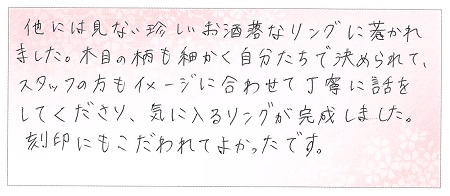 他には見ない珍しいお洒落なリングに惹かれ
ました。木目の柄も細かく自分たちで決められて、
スタッフの方もイメージに合わせて丁寧に話を
してくださり、気に入るリングが完成しました。
刻印にもこだわれてよかったです。